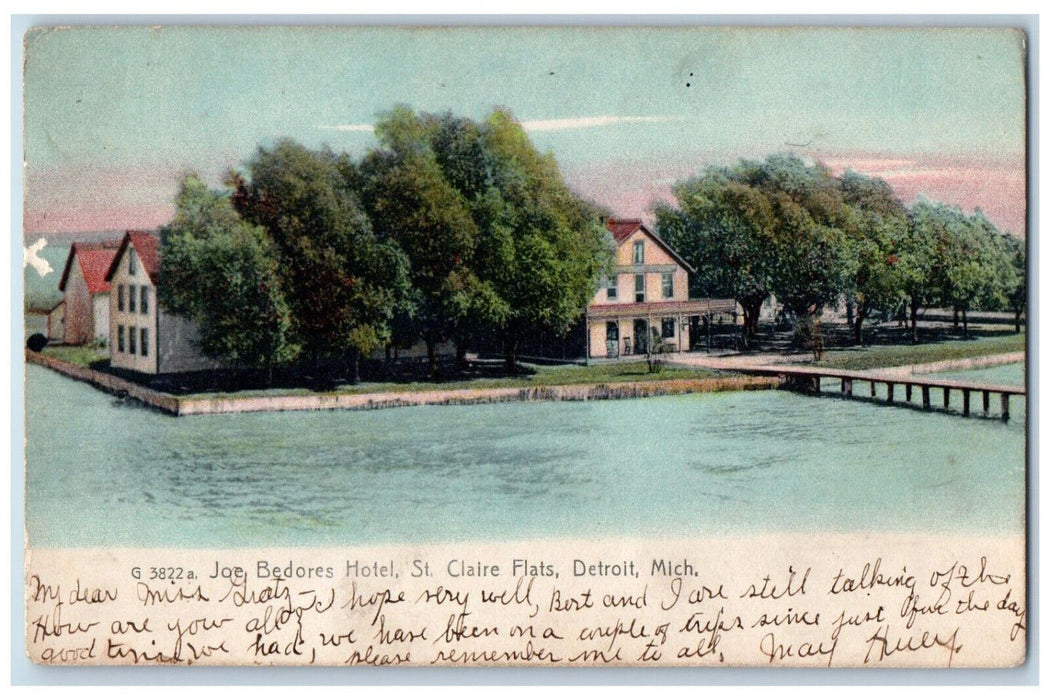 G 3822a. Joe Bedores Hotel, St. Claire Flats, Detroit, Mich.
My dear Miss I hope very well, Bert and I are still talking of the
How are you all? we have been on a couple of trips since just for the day
good time we had, please remember me to all, May